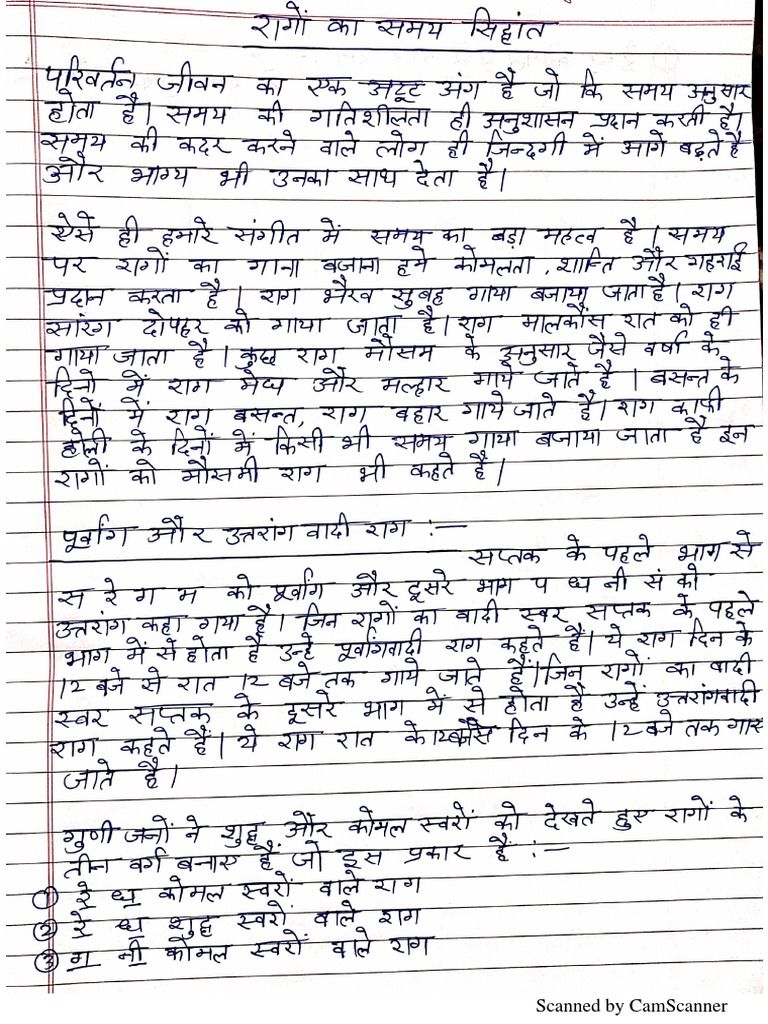 रागों का समय सिद्धांत
परिवर्तन जीवन का एक अटूट अंग है जो कि समय अनुसार
होता है। समय की गतिशीलता ही अनुशासन प्रदान करती है।
समय की कदर करने वाले लोग ही जिन्दगी में आगे बढ़ते है
और भाग्य भी उनका साथ देता है।
ऐसे ही हमारे संगीत में समय का बड़ा महत्व है। समय
पर रागों का गाना बजाना हमे कोमलता, शान्ति और गहराई
प्रदान करता है। राग भैरव सुबह गाया बजाया जाता है। राग
सारंग दोपहर को गाया जाता है। राग मालकौंस रात को ही
गाया जाता है। कुछ राग मौसम के अनुसार जैसे वर्षा के
दिनो में राग मेघ और मल्हार गाये जाते है। बसन्त के
दिनों में राग बसन्त, राग बहार गाये जाते है। राग काफी
होली के दिनों में किसी भी समय गाया बजाया जाता है इन
रागों को मौसमी राग भी कहते है।
पूर्वांग और उत्तरांग वादी राग :—
सप्तक के पहले भाग से
स रे ग म को पूर्वांग और दूसरे भाग प ध नी सं को
उत्तरांग कहा गया है। जिन रागों का वादी स्वर सप्तक के पहले
भाग में से होता है उन्हे पूर्वांगवादी राग कहते है। ये राग दिन के
12 बजे से रात 12 बजे तक गाये जाते हैं। जिन रागों का वादी
स्वर सप्तक के दूसरे भाग में से होता है उन्हें उत्तरांगवादी
राग कहते हैं। ये राग रात के 12 बजे से दिन के 12 बजे तक गाए
जाते है।
गुणी जनों ने शुद्ध और कोमल स्वरों को देखते हुए रागों के
तीन वर्ग बनाए हैं जो इस प्रकार हैं :—
① रे ध कोमल स्वरों वाले राग
② रे ध शुद्ध स्वरों वाले राग
③ ग नी कोमल स्वरों वाले राग
Scanned by CamScanner